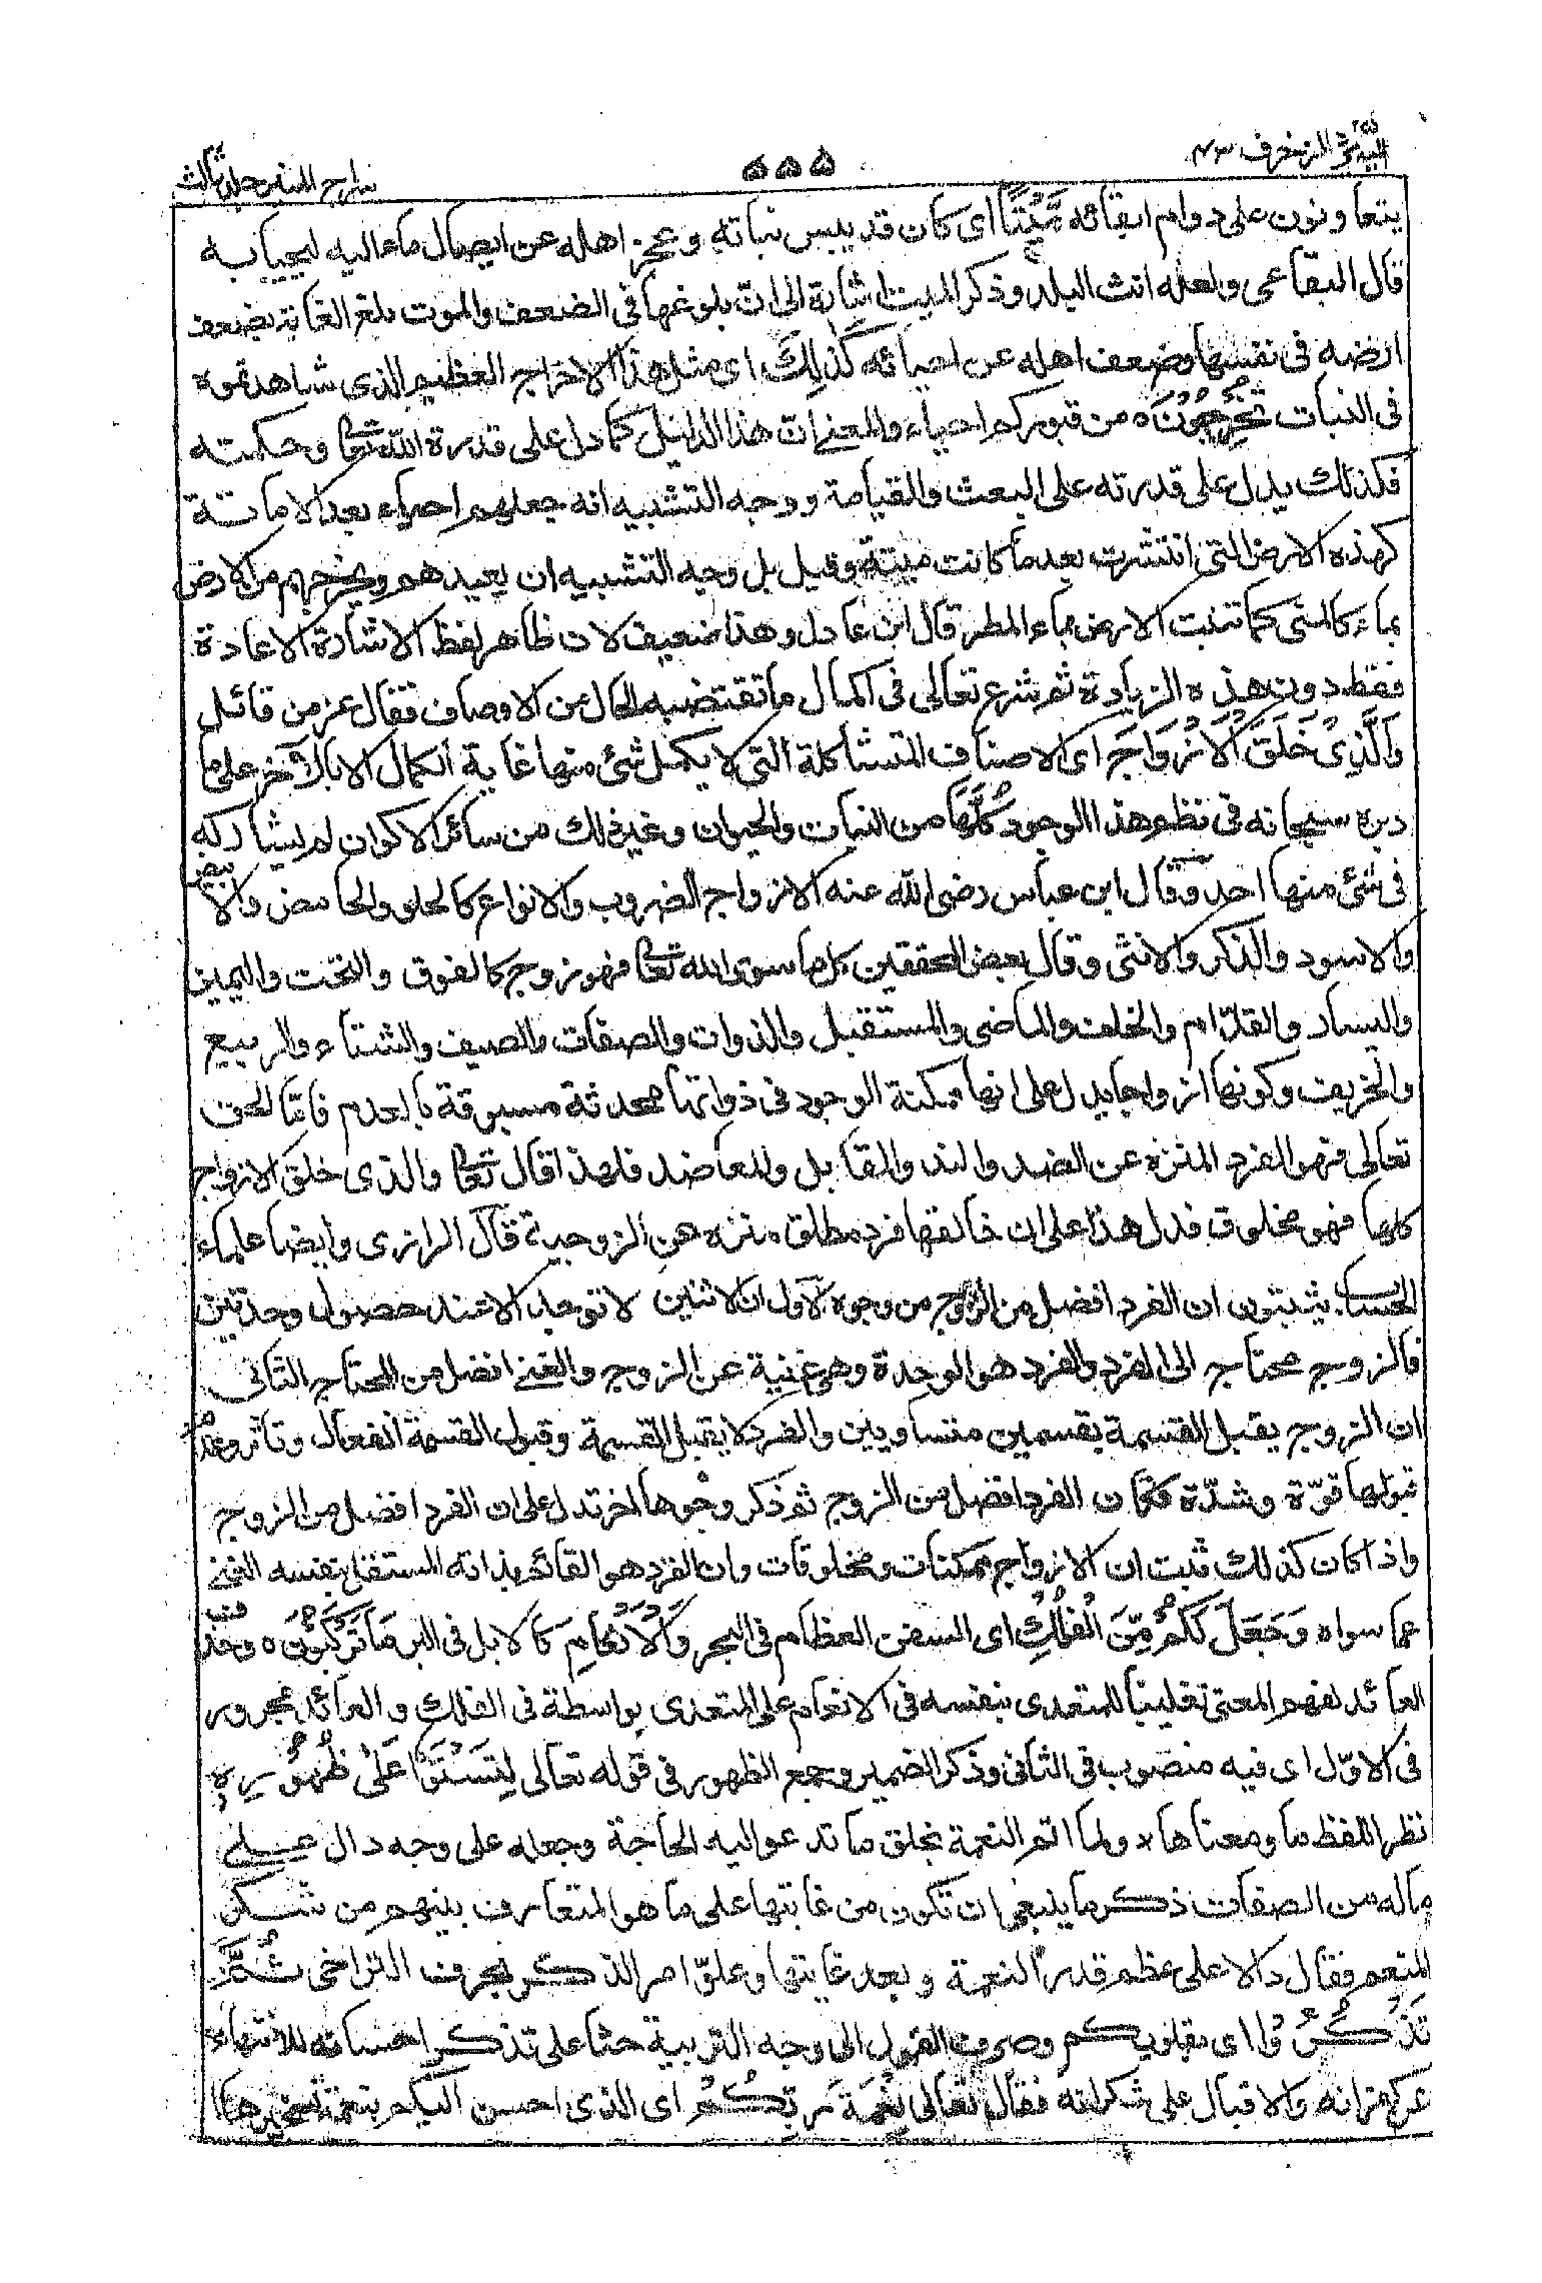 الزخرف ٤٣
٥٥٥
سراج المنير جلد ثالث
يتعاونون على دوام ابقائه مَّيْتًا اى كان قد يبس نباته وعجز اهله عن ايصال ماء اليه ليحيا به
قال البقاعى ولعله انث البلد وذكر الميت اشارة الى ان بلوغها فى الضعف والموت بلغ الغاية بضعف
ارضه فى نفسها وضعف اهله عن احيائه كَذٰلِكَ اى مثل هذا الاخراج العظيم الذى شاهدتموه
فى النبات تُخْرَجُوْنَ ه من قبوركم احياء والمعنى ان هذا الدليل كما دل على قدرة الله تعا وحكمته
فكذلك يدل على قدرته على البعث والقيامة ووجه التشبيه انه جعلهم احياء بعد الاماتة
كهذه الارض التى انتشرت بعد ما كانت ميتة وقيل بل وجه التشبيه ان يعيدهم ويخرجهم من الارض
بماء كالمنى كما تنبت الارض بماء المطر قال ابن عادل وهذا ضعيف لان ظاهر لفظ الاشارة الاعادة
فقط دون هذه الزيادة ثم شرع تعالى فى اكمال ما تقتضيه الحال من الاوصاف فقال عز من قائل
وَالَّذِىْ خَلَقَ الْاَزْوَاجَ اى الاصناف المتشاكلة التى لا يكمل شئ منها غاية الكمال الا بالآخر على ما
دبره سبحانه فى نظم هذا الوجود كُلَّهَا من النبات والحيوان وغير ذلك من سائر الاكوان لم يشاركه
فى شئ منها احد وقال ابن عباس رضى الله عنه الازواج الضروب والانواع كالحلو والحامض والابيض
والاسود والذكر والانثى وقال بعض المحققين كل ما سوى الله تعا فهو زوج كالفوق والتحت واليمين
واليسار والقدّام والخلف والماضى والمستقبل والذوات والصفات والصيف والشتاء والربيع
والخريف وكونها ازواجا يدل على انها ممكنة الوجود فى ذواتها محدثة مسبوقة بالعدم فامّا الحق
تعالى فهو الفرد المنزه عن الضد والند والمقابل والمعاضد فلهذا قال تعا والذى خلق الازواج
كلها فهو مخلوق فدل هذا على ان خالقها فرد مطلق منزه عن الزوجية قال الرازى وايضا علماء
الحساب يثبتون ان الفرد افضل من الزوج من وجوه الاول ان الاثنين لا توجد الا عند حصول وحدتين
فالزوج محتاج الى الفرد والفرد هو الوحدة وهى غنية عن الزوج والغنى افضل من المحتاج الثانى
ان الزوج يقبل القسمة بقسمين متساويين والفرد لا يقبل القسمة وقبول القسمة انفعال وتأثر وعدم
قبولها قوّة وشدّة فكان الفرد افضل من الزوج ثم ذكر وجوها اخر تدل على ان الفرد افضل من الزوج
واذا كان كذلك ثبت ان الازواج ممكنات ومخلوقات وان الفرد هو القائم بذاته المستقل بنفسه الغنى
عما سواه وَجَعَلَ لَكُمْ مِّنَ الْفُلْكِ اى السفن العظام فى البحر وَالْاَنْعَامِ كالابل فى البر مَا تَرْكَبُوْنَ ه وحذف
العائد لفهم المعنى تغليبا للمتعدى بنفسه فى الانعام على المتعدى بواسطة فى الفلك والعائد مجرور
فى الاوّل اى فيه منصوب فى الثانى وذكر الضمير وجمع الظهور فى قوله تعالى لِتَسْتَوٗا عَلٰى ظُهُوْرِهٖ
نظرا للفظ ما ومعناها ولما اتم النعمة بخلق ما تدعو اليه الحاجة وجعله على وجه دال على
ماله من الصفات ذكر ما ينبغى ان تكون من غايتها على ما هو المتعارف بينهم من شكر
المنعم فقال دالا على عظم قدر النعمة وبعد غايتها وعلوّ امر الذكر بحرف التراخى ثُمَّ
تَذْكُرُوْا اى بقلوبكم وصرف القول الى وجه التربية حثا على تذكر احسانه للانتهاء
عن كفرانه والاقبال على شكرانه فقال تعالى نِعْمَةَ رَبِّكُمْ اى الذى احسن اليكم بنعمة تسخيرها